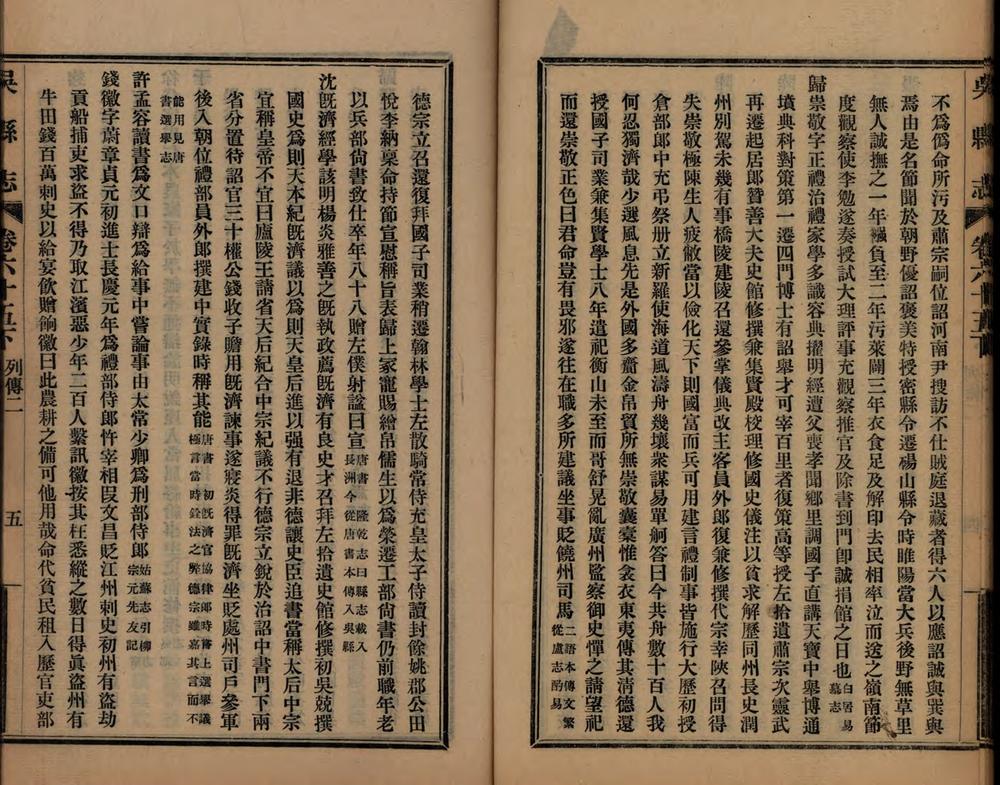 吳縣志
卷六十五下
不爲僞命所污及肅宗嗣位詔河南尹搜訪不仕賊庭退藏者得六人以應詔誠與巽與
焉由是名節聞於朝野優詔褒美特授密縣令遷碭山縣令時睢陽當大兵後野無草里
無人誠撫之一年襁負至二年污萊闢三年衣食足及解印去民相率泣而送之嶺南節
度觀察使李勉遂奏授試大理評事充觀察推官及除書到門卽誠捐館之日也白居易墓志
歸崇敬字正禮治禮家學多識容典擢明經遭父喪孝聞鄉里調國子直講天寶中舉博通
墳典科對策第一遷四門博士有詔舉才可宰百里者復策高等授左拾遺肅宗次靈武
再遷起居郎贊善大夫史館修撰兼集賢殿校理修國史儀注以貧求解歷同州長史潤
州別駕未幾有事橋陵建陵召還參掌儀典改主客員外郎復兼修撰代宗幸陝召問得
失崇敬極陳生人疲敝當以儉化天下則國富而兵可用建言禮制事皆施行大歷初授
倉部郎中充弔祭册立新羅使海道風濤舟幾壞衆謀易單舸答曰今共舟數十百人我
何忍獨濟哉少選風息先是外國多齎金帛貿所無崇敬囊橐惟衾衣東夷傳其清德還
授國子司業兼集賢學士八年遣祀衡山未至而哥舒晃亂廣州監察御史憚之請望祀
而還崇敬正色曰君命豈有畏邪遂往在職多所建議坐事貶饒州司馬二語本傳文繁從盧志酌易
德宗立召還復拜國子司業稍遷翰林學士左散騎常侍充皇太子侍讀封餘姚郡公田
悅李納稟命持節宣慰稱旨表歸上冢寵賜繒帛儒生以爲榮遷工部尚書仍前職年老
以兵部尚書致仕卒年八十八贈左僕射諡曰宣唐書 隆乾志曰縣志載入長洲今從唐書本傳入吳縣
沈旣濟經學該明楊炎雅善之旣執政薦旣濟有良史才召拜左拾遺史館修撰初吳兢撰
國史爲則天本紀旣濟議以爲則天皇后進以强有退非德讓史臣追書當稱太后中宗
宜稱皇帝不宜曰廬陵王請省天后紀合中宗紀議不行德宗立銳於治詔中書門下兩
省分置待詔官三十權公錢收子贍用旣濟諫事遂寢炎得罪旣濟坐貶處州司戶參軍
後入朝位禮部員外郎撰建中實錄時稱其能唐書 初旣濟官協律郎時嘗上選舉議極言當時銓法之弊德宗雖嘉其言而不
能用見唐書選舉志
許孟容讀書爲文口辯爲給事中嘗論事由太常少卿爲刑部侍郎姑蘇志引柳宗元先友記
錢徽字蔚章貞元初進士長慶元年爲禮部侍郎忤宰相段文昌貶江州刺史初州有盜劫
貢船捕吏求盜不得乃取江濱惡少年二百人繫訊徽按其枉悉縱之數日得眞盜州有
牛田錢百萬刺史以給宴飮贈餉徽曰此農耕之備可他用哉命代貧民租入歷官吏部
吳縣志
卷六十五下
列傳二
五